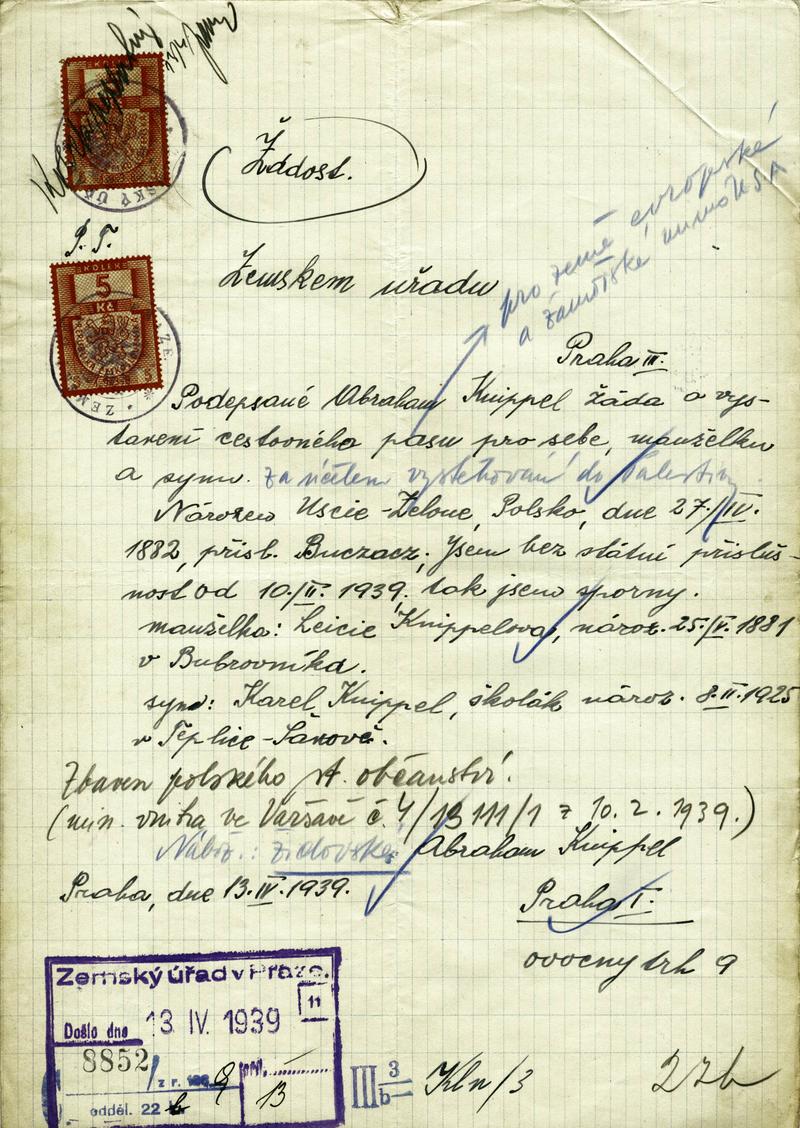 Žádost.
P. T.
Zemskem uřadu
pro země evropské
a zámořské mimo USA
KOLEK
5
Kč
Praha III.
Podepsané Abraham Knippel žáda o vys-
tavení cestovného pasu pro sebe, manželku
a syna. za účelem vystěhování do Palestiny.
Národen Uscie-Zelone, Polsko, dne 27./IV.
1882, přisl. Buczacz. Jsem bez státní přísluš-
nost od 10./II. 1939. tak jsem sporny.
manželka: Leicie Knippelova, národ. 25./V. 1881
v Bubrovníka.
syn: Karel Knippel, školák národ. 8.II.1925
v Teplice-Šanově.
Zbaven polského st. občanství.
(min. vnitra ve Varšavě č. 4/13111/1 z 10. 2. 1939.)
Nábož.: židovské
Abraham Knippel
Praha, dne 13.IV.1939.
Praha I.
ovocny trh 9
Zemský úřad v Praze.
11
Došlo dne 13 IV. 1939
8852/z r. 1939
příl. 13
odděl. 22 b
III 3/b
Kln/3
22b